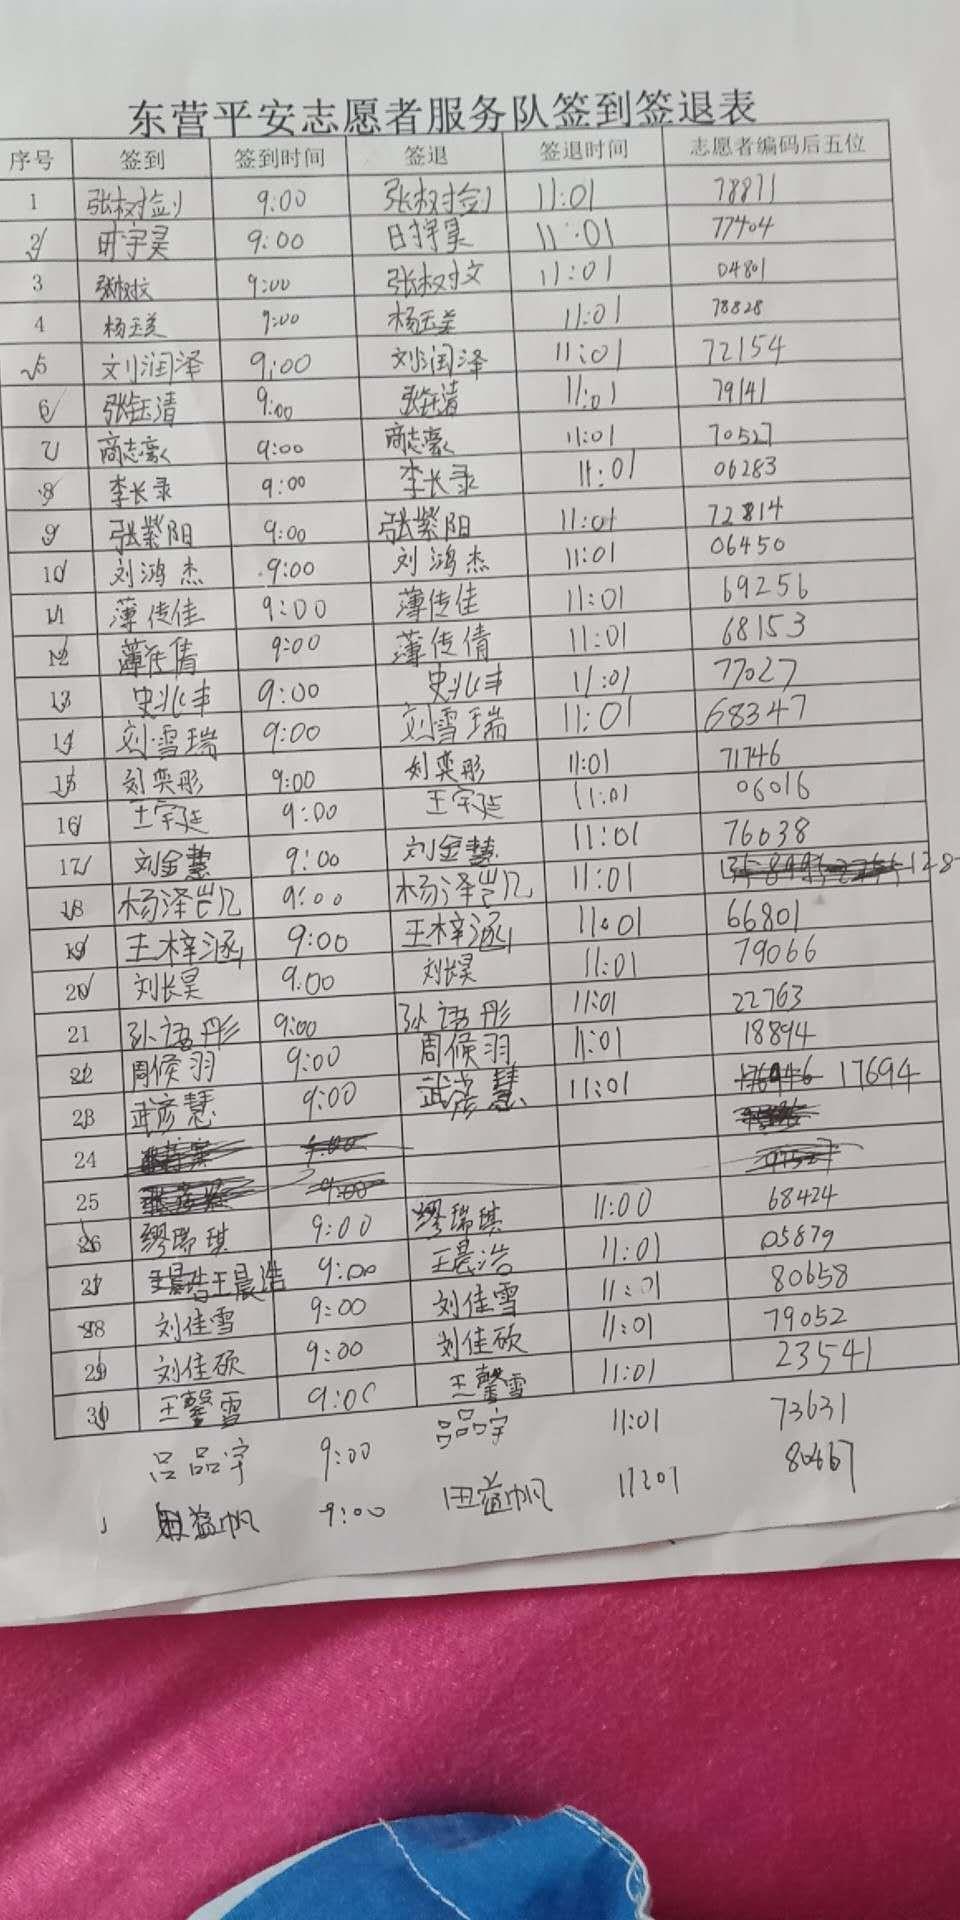 东营平安志愿者服务队签到签退表
序号 签到 签到时间 签退 签退时间 志愿者编码后五位
1 张树剑 9:00 张树剑 11:01 78871
2 时宇昊 9:00 时宇昊 11:01 77404
3 张树文 9:00 张树文 11:01 04801
4 杨玉美 9:00 杨玉美 11:01 78828
5 刘润泽 9:00 刘润泽 11:01 72154
6 张钰清 9:00 张钰清 11:01 79141
7 商志豪 9:00 商志豪 11:01 70527
8 李长录 9:00 李长录 11:01 06283
9 张紫阳 9:00 张紫阳 11:01 72814
10 刘鸿杰 9:00 刘鸿杰 11:01 06450
11 薄传佳 9:00 薄传佳 11:01 69256
12 薄传倩 9:00 薄传倩 11:01 68153
13 史兆丰 9:00 史兆丰 11:01 77027
14 刘雪瑞 9:00 刘雪瑞 11:01 68347
15 刘奕彤 9:00 刘奕彤 11:01 71746
16 王宇廷 9:00 王宇廷 11:01 06016
17 刘金慧 9:00 刘金慧 11:01 76038
18 杨泽岂几 9:00 杨泽岂几 11:01
19 王梓涵 9:00 王梓涵 11:01 66801
20 刘长昊 9:00 刘长昊 11:01 79066
21 孙语彤 9:00 孙语彤 11:01 22763
22 周候羽 9:00 周候羽 11:01 18894
23 武彦慧 9:00 武彦慧 11:01 17694
24
25
26 缪瑞琪 9:00 缪瑞琪 11:00 68424
27 王晨浩 9:00 王晨浩 11:01 05879
28 刘佳雪 9:00 刘佳雪 11:01 80658
29 刘佳硕 9:00 刘佳硕 11:01 79052
30 王馨雪 9:00 王馨雪 11:01 23541
吕品宇 9:00 吕品宇 11:01 73631
田益帆 9:00 田益帆 11:01 80467